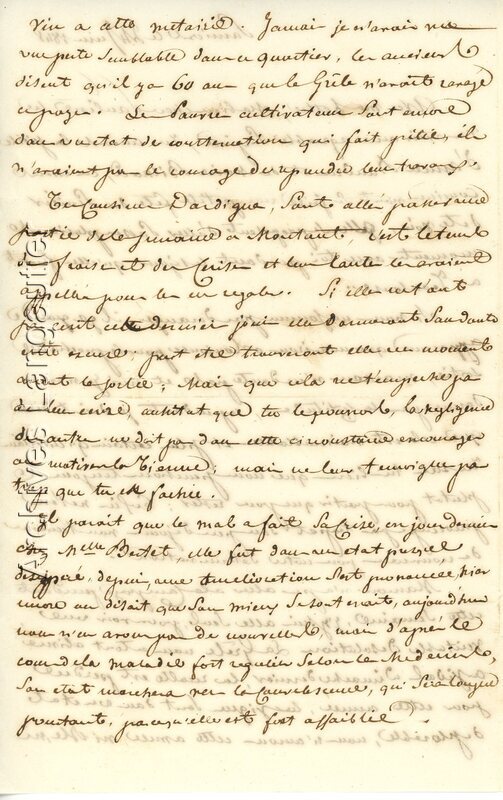 vin a cette metairie. Jamais je n'avais vu
une perte semblable dans ce quartier, les anciens
disent qu'il y a 60 ans que la Grêle n'avait ravagé
ce pays. Le Pauvre cultivateur sont encore
dans un état de consternation qui fait pitié, ils
n'avaient pas le courage de reprendre leur travaux.
Tes Cousines Dardigna, sont allé passer une
partie de la semaine a Montaut, c'est le tems
des fraises et des Cerises et leur tante les avaient
appellée pour les en regaler. Si elle ne t'ont
pas écrit cette dernier jour elle donneront sans doute
cette excuse; peut etre trouveront elle un moment
avant la sortie; Mais que cela ne t'empeche pas
de leur écrire, aussitot que tu le pourras, la negligence
des autres ne doit pas dans cette circonstance encourager
a motiver la tienne; mais ne leur temoigne pas
trop que tu es fachée.
Il parait que le mal a fait sa Crise, ces jours derniers
chez Melle Bertet, elle fut dans un etat presque
désespéré, depuis, une amélioration s'est prononcée, hier
encore on disait que son mieux se soutenait, aujourd'hui
nous n'en avons pas de nouvelles, mais d'après le
cours de la maladie fort regulier selon les Medecins,
son état marchera vers la Convalescence, qui sera longue
pourtant, parcequ'elle est fort affaiblie.
Archives Lengaulier